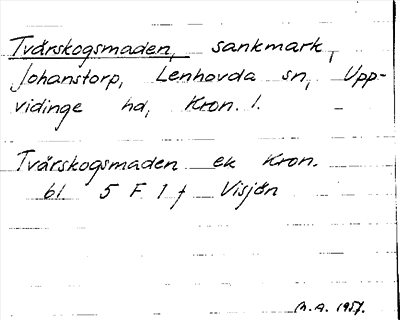 Tvärskogsmaden, sankmark,
Johanstorp, Lenhovda sn, Upp-
vidinge hd, Kron. l.
Tvärskogsmaden ek Kron.
bl 5 F 1 f Visjön
M.A. 1957.